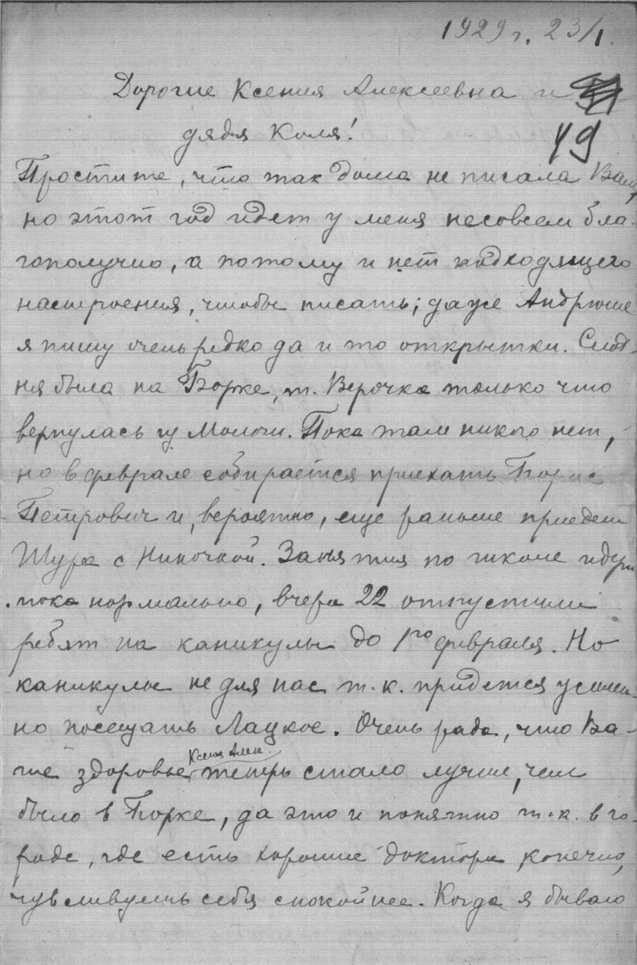 1929 г. 23/I.
Дорогие Ксения Алексеевна и
дядя Коля!
49
Простите, что так долго не писала Вам,
но этот год идет у меня несовсем бла-
гополучно, а потому и нет подходящего
настроения, чтобы писать; даже Андрюше
я пишу очень редко да и то открытки. Сегод-
ня была на Борке, т. Верочка только что
вернулась из Мологи. Пока там никого нет,
но в феврале собирается приехать Борис
Петрович и, вероятно, еще раньше приедет
Шура с Ниночкой. Занятия по школе идут
пока нормально, вчера 22 отпустили
ребят на каникулы до 1го февраля. Но
каникулы не для нас т.к. придется усилен-
но посещать Лацкое. Очень рада, что Ва-
ше здоровье Ксения Алек. теперь стало лучше, чем
было в Борке, да это и понятно т.к. в го-
роде, где есть хорошие доктора конечно,
чувствуешь себя спокойнее. Когда я бываю